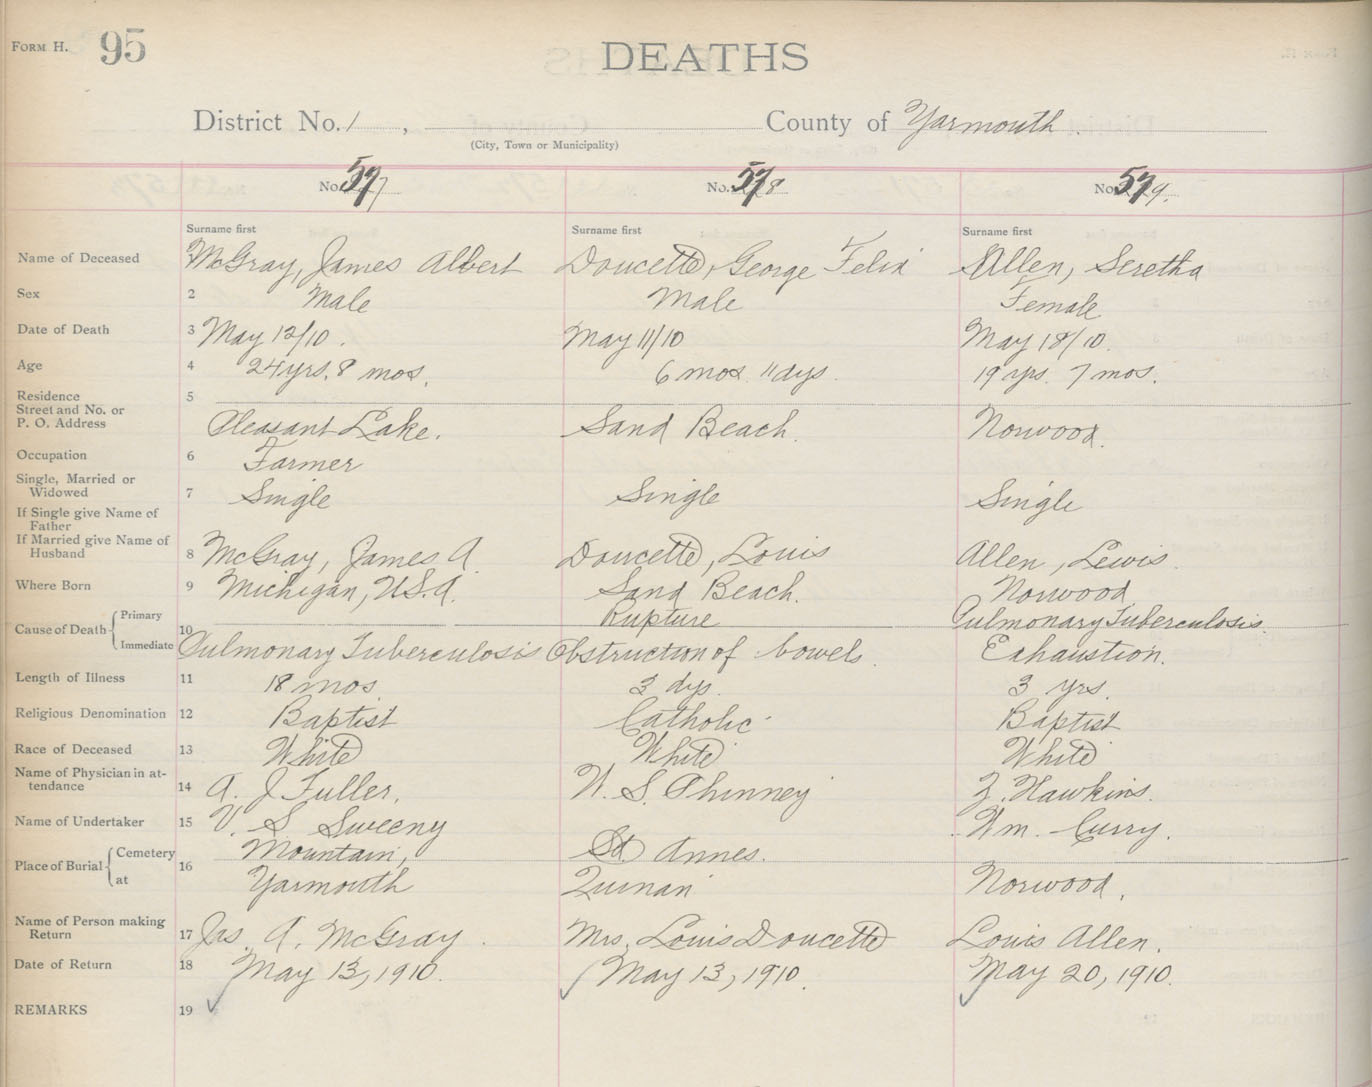 FORM H. 95
DEATHS
District No. 1, County of Yarmouth
(City, Town or Municipality)
No. 577 No. 578 No. 579.
Surname first Surname first Surname first
Name of Deceased McGray, James Albert Doucette, George Felix Allen, Seretha
Sex 2 Male Male Female
Date of Death 3 May 12/10. May 11/10 May 18/10.
Age 4 24 yrs. 8 mos. 6 mos 11 dys. 19 yrs. 7 mos.
Residence 5
Street and No. or
P. O. Address Pleasant Lake. Sand Beach. Norwood.
Occupation 6 Farmer
Single, Married or
Widowed 7 Single Single Single
If Single give Name of
Father
If Married give Name of
Husband 8 McGray, James A. Doucette, Louis Allen, Lewis.
Where Born 9 Michigan, U.S.A. Sand Beach. Norwood
Cause of Death Primary 10 Rupture Pulmonary Tuberculosis.
Immediate Pulmonary Tuberculosis Obstruction of bowels. Exhaustion.
Length of Illness 11 18 mos 3 dys. 3 yrs.
Religious Denomination 12 Baptist Catholic Baptist
Race of Deceased 13 White White White
Name of Physician in at-
tendance 14 A. J. Fuller. W. S. Phinney Z. Hawkins.
Name of Undertaker 15 V. S. Sweeny Wm. Curry.
Place of Burial Cemetery 16 Mountain, St Annes.
at Yarmouth Quinan Norwood.
Name of Person making
Return 17 Jas. A. McGray. Mrs. Louis Doucette Louis Allen.
Date of Return 18 May 13, 1910. May 13, 1910. May 20, 1910.
REMARKS 19